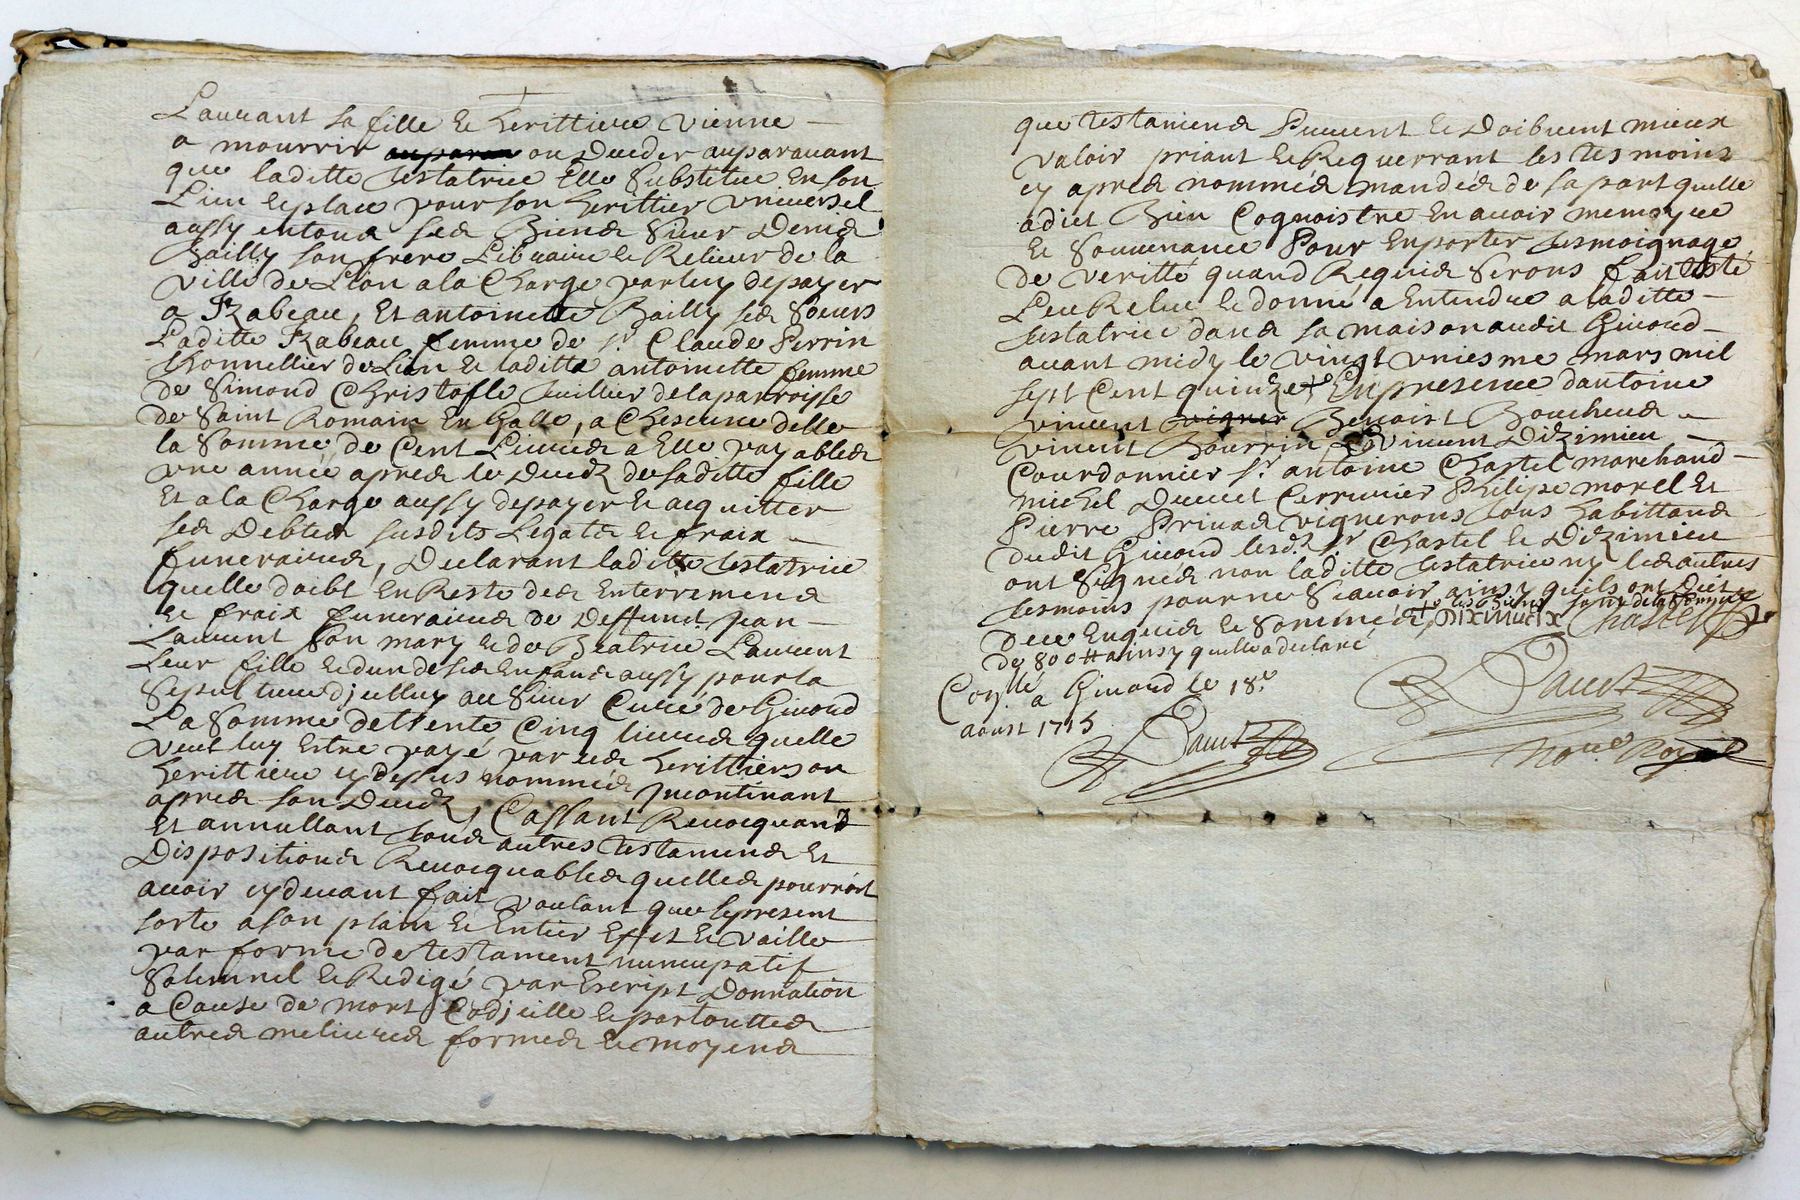 Laurant sa fille & herittiere vienne
a mourrir auparav ou deceder auparavant
que laditte testatrice elle substitue en son
Lieu & place pour son herittier universel
aussy en tous ses Biens sieur Denis
Bailly son frere Libraire & Relieur de la
ville de Lion a la Charge par luy de payer
a Izabeau, Et antoinette Bailly ses soeurs
Laditte Izabeau femme de sr Claude Perrin
thonnellier de Lion & laditte antoinette femme
de Simond Christofle tuillier de la parroisse
de Saint Romain En Galle, a Chescune delle
la somme de Cent Livres a Elle payables
une année apres le decedz de saditte fille
Et a la Charge aussy de payer & acquitter
ses Debtes susdits Legats & fraix
funeraires, Declarant laditte testatrice
quelle doibt En Reste des Enterremens
& fraix funeraires de Deffunct Jean
Laurent son mary & de Beatrice Laurent
Leur fille & dun de ses Enfans aussy pour la
Sepulture djcelluy au sieur Curé de Givord
La somme de trente Cinq livres quelle
veut luy Estre payé par ses herittiers ou
herittiere cy dessus nommés jncontinant
apres son Decedz, Cassant Revocquant
Et annullant tous autres testamens Et
Dispositions Revocquables quelles pourroit
avoir cy devant fait voulant que le present
sorte a son plain & Entier Effet & vaille
par forme de testament nuncupatif
Solemnel & Redigé par Escript Donnation
a Cause de mort Codjcille & par touttes
autres melieures formes & moyens
que testamens Peuvent & Doibvent mieux
valoir priant & Requerrant les tesmoins
cy apres nommés mandés de sa part quelle
a dict Bien Cognoistre En avoir memoyre
& Souvenance Pour En porter tesmoignage
de veritté quand Requis Serons fait testé
Leu Releu & donné a Entendre a laditte
testatrice dans sa maison audit Givord
avant midy le vingt uniesme mars mil
sept Cent quinze + En presence dantoine
vincent vigner Benoist Boucheus
vincent Bourrin & vincent Dizimieu
Courdonnier sr antoine Chastel marchand
michel Ducret Cerrurier Philipe morel Et
Pierre Privas vignerons tous habittans
dudit Givord lesds sr Chastel & Dizimieu
ont Signés non laditte testatrice ny les autres
tesmoins pour ne Scavoir ainsy quils ont dict
de ce Enquis & Sommés + les Biens sont de la somme
de 800 # ainsy quelle a declaré
Diximieux Chastel
Coll. a Givord le 18e
aoust 1715
Nore Royal